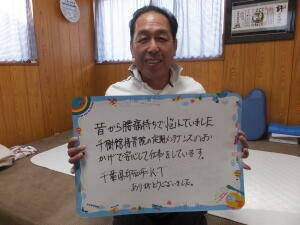 昔から腰痛持ちで悩んでいました
千樹館接骨院の定期メンテナンスのお
かげで安心して仕事をしています。
千葉県印西市 K.T
ありがとうございました。